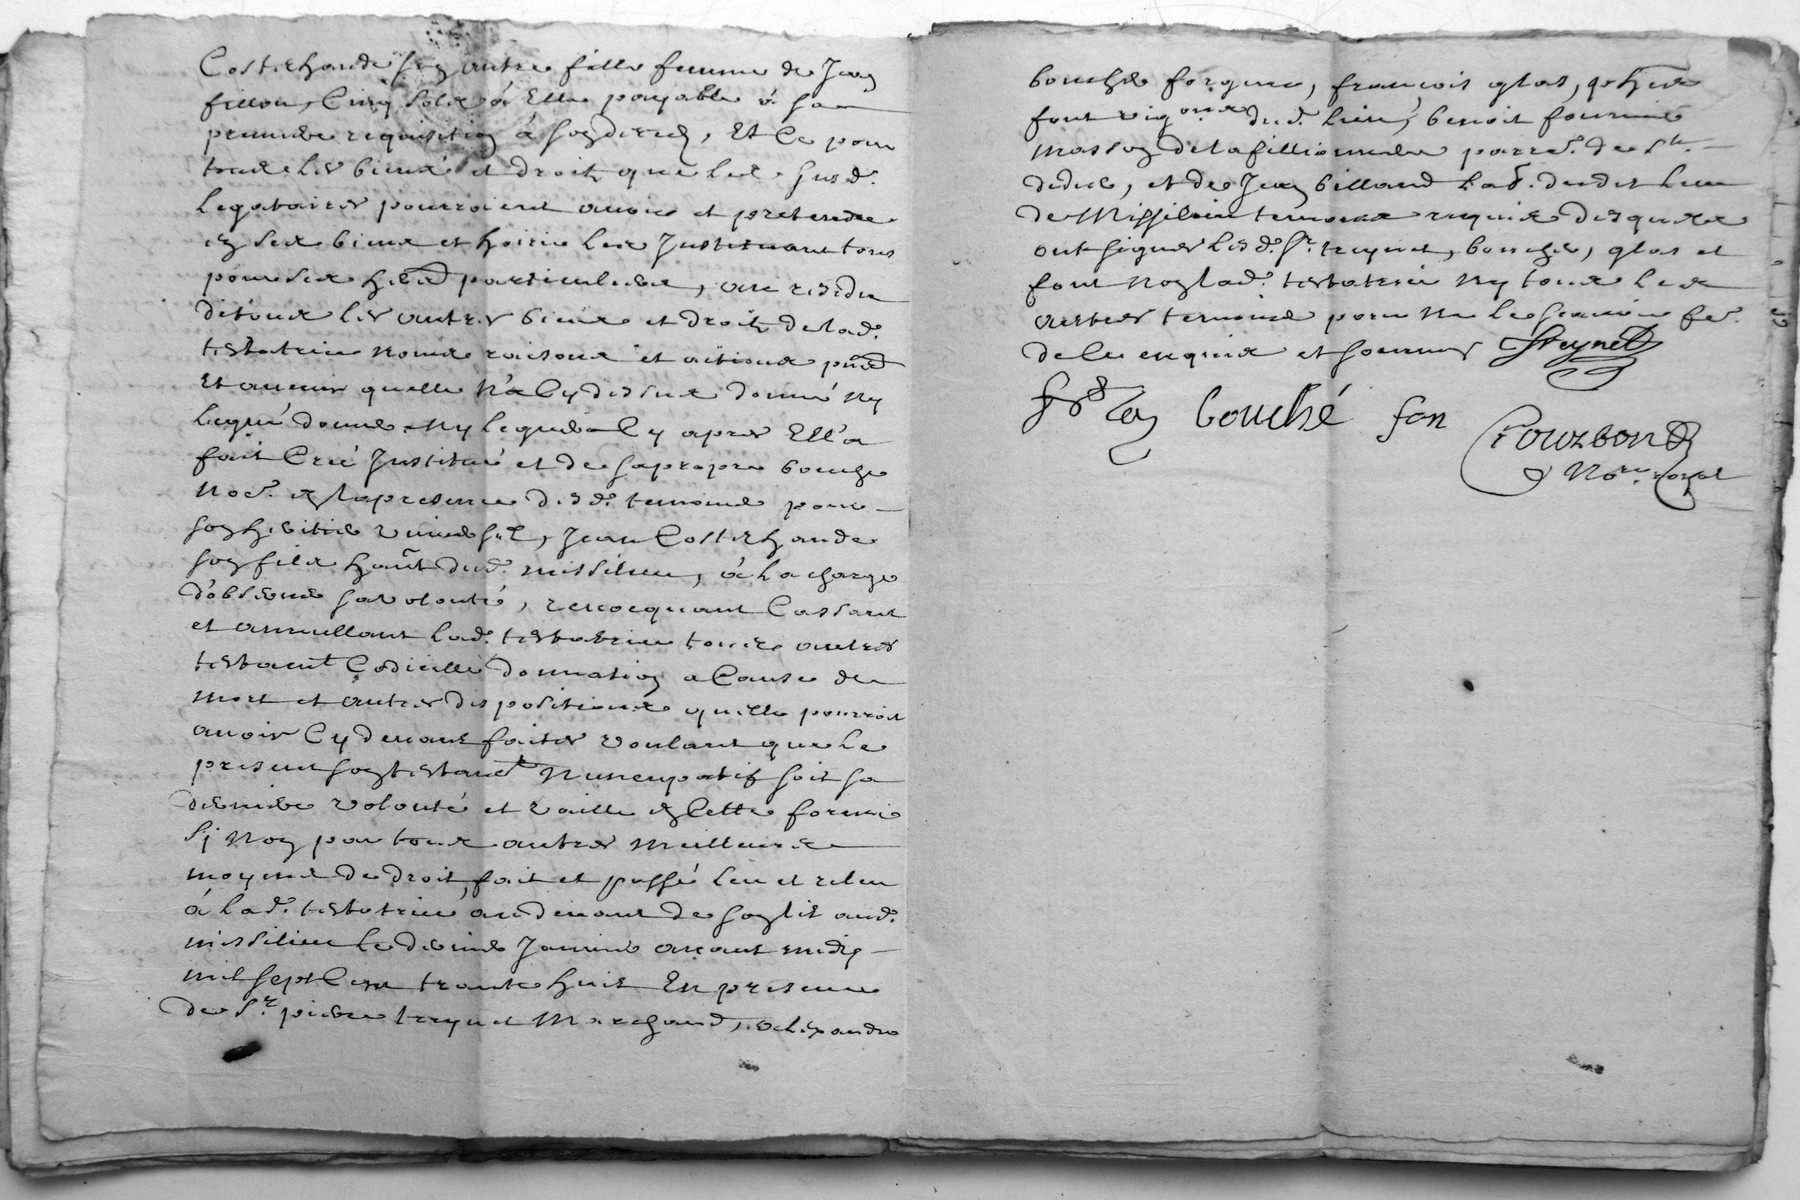 Costechaude son autre fille femme de Jean
fillon, Cinq sols à Elle payable à sa
premiere requisition à son deces, Et Ce pour
tous les biens et droits que les susd.
Legataires pourroient avoir et pretendre
en ses biens et hoirie les Instituant tous
pour ses hers particuliers, au residu
de tous les autres biens et droits de lad.
testatrice noms raisons et actions pnts
Et avenir quelle n'a Cy dessus donné ny
Legué donne ny Legue Cy apres Ell'a
fait Créé Institué et de sa propre bouche
nõe. en la presence desd. temoins pour
son heritier universel, Jean Costechaude
son fils hant dud. missilieu, à La charge
d'observer sa volonté, revocquant Cassant
et annullant Lad. testatrice tous autres
testament Codicille donnation a Cause de
mort et autres dispositions quelle pourroit
avoir Cy devant faites voulant que Le
present son testament Nuncupatif soit sa
derniere volonté et vaille en Cette forme
si non par tous autres meilleurs
moyens de droit, fait et passé leu et releu
à Lad. testatrice au devant de son lit aud.
missilieu le Janvier avant midy
mil sept Cent trante huit En presence
de Sr. pierre treynet Marchand, alexandre
bouché françois glas,
dud. Lieu, benoit fournier
masson de la parre. de St.
didier, et de Jean billaud Lab. dudit Lieu
de Missilieu temoins requis desquels
ont signés lesd. Sr. treynet, bouché, glas et
font non lad. testatrice ny tous les
autres temoins pour ne le scavoir fe.
de Ce enquis et sommés Treynet
bouché fon
Crouzbon
Nore. royal